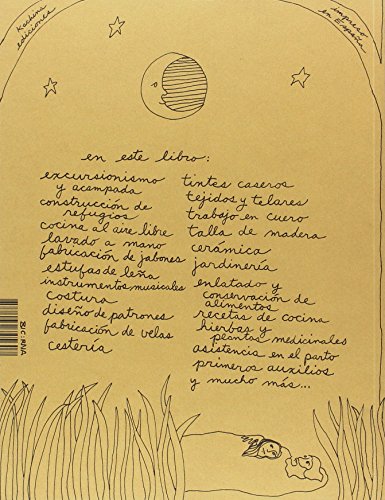 Kachina
ediciones
impreso
en España
en este libro:
excursionismo
y acampada
construcción de
refugios
cocina al aire libre
lavado a mano
fabricación de jabones
estufas de leña
instrumentos musicales
costura
diseño de patrones
fabricación de velas
cestería
tintes caseros
tejidos y telares
trabajo en cuero
talla de madera
cerámica
jardinería
enlatado y
conservación de
alimentos
recetas de cocina
hierbas y
plantas medicinales
asistencia en el parto
primeros auxilios
y mucho más...